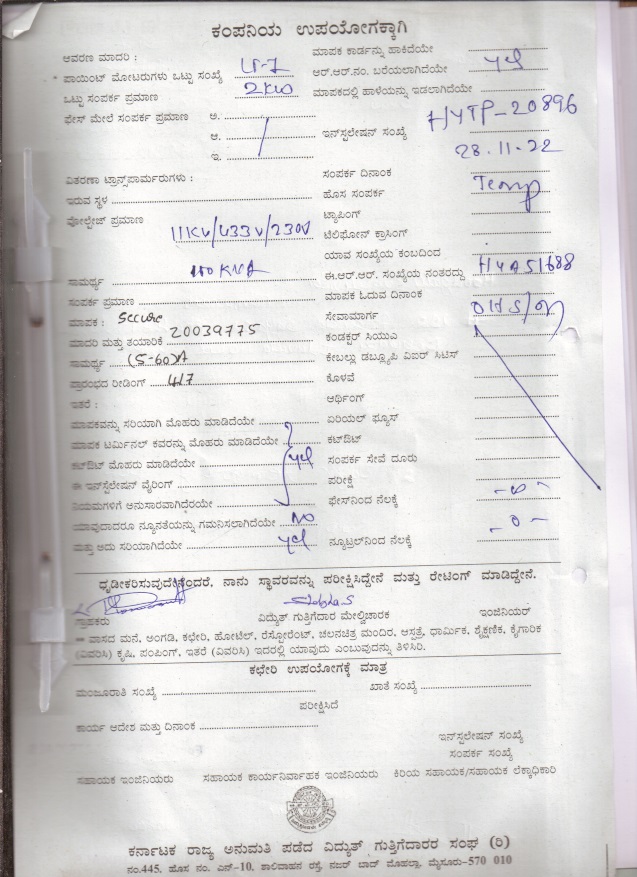 ಕಂಪನಿಯ ಉಪಯೋಗಕ್ಕಾಗಿ
ಆವರಣ ಮಾದರಿ : LT-7
* ಪಾಯಿಂಟ್ ಮೋಟರುಗಳು ಒಟ್ಟು ಸಂಖ್ಯೆ
ಒಟ್ಟು ಸಂಪರ್ಕ ಪ್ರಮಾಣ 2KW
ಫೇಸ್ ಮೇಲೆ ಸಂಪರ್ಕ ಪ್ರಮಾಣ ಅ.
ಆ.
ಇ.
ವಿತರಣಾ ಟ್ರಾನ್ಸ್‌ಫಾರ್ಮರುಗಳು :
ಇರುವ ಸ್ಥಳ
ವೋಲ್ಟೇಜ್ ಪ್ರಮಾಣ 11KV/433V/230V
ಸಾಮರ್ಥ್ಯ KVA
ಸಂಪರ್ಕ ಪ್ರಮಾಣ
ಮಾಪಕ : Secure
ಮಾದರಿ ಮತ್ತು ತಯಾರಿಕೆ 20039775
ಸಾಮರ್ಥ್ಯ (5-60)A
ಪ್ರಾರಂಭದ ರೀಡಿಂಗ್ 4/7
ಇತರೆ :
ಮಾಪಕವನ್ನು ಸರಿಯಾಗಿ ಮೊಹರು ಮಾಡಿದೆಯೇ
ಮಾಪಕ ಟರ್ಮಿನಲ್ ಕವರನ್ನು ಮೊಹರು ಮಾಡಿದೆಯೇ
ಕಟ್‌ಔಟ್ ಮೊಹರು ಮಾಡಿದೆಯೇ yes
ಈ ಇನ್‌ಸ್ಟಲೇಷನ್ ವೈರಿಂಗ್
ನಿಯಮಗಳಿಗೆ ಅನುಸಾರವಾಗಿದ್ದೆರೆಯೇ
ಯಾವುದಾದರೂ ನ್ಯೂನತೆಯನ್ನು ಗಮನಿಸಲಾಗಿದೆಯೇ No
ಮತ್ತು ಅದು ಸರಿಯಾಗಿದೆಯೇ yes
ಮಾಪಕ ಕಾರ್ಡನ್ನು ಹಾಕಿದೆಯೇ
ಆರ್.ಆರ್.ನಂ. ಬರೆಯಲಾಗಿದೆಯೇ yes
ಮಾಪಕದಲ್ಲಿ ಹಾಳೆಯನ್ನು ಇಡಲಾಗಿದೆಯೇ
ಇನ್‌ಸ್ಟಲೇಷನ್ ಸಂಖ್ಯೆ HYTP-20896
28.11.22
ಸಂಪರ್ಕ ದಿನಾಂಕ
ಹೊಸ ಸಂಪರ್ಕ Temp
ಟ್ಯಾಪಿಂಗ್
ಟೆಲಿಫೋನ್ ಕ್ರಾಸಿಂಗ್
ಯಾವ ಸಂಖ್ಯೆಯ ಕಂಬದಿಂದ
ಈ.ಆರ್.ಆರ್. ಸಂಖ್ಯೆಯ ನಂತರದ್ದು HYA51688
ಮಾಪಕ ಓದುವ ದಿನಾಂಕ
ಸೇವಾಮಾರ್ಗ OHS/
ಕಂಡಕ್ಟರ್ ಸಿಯುಎ
ಕೇಬಲ್ಲು ಡಬ್ಲ್ಯೂಪಿ ವಿಐರ್ ಸಿಟಿಸ್
ಕೊಳವೆ
ಆರ್ಥಿಂಗ್
ಏರಿಯಲ್ ಫ್ಯೂಸ್
ಕಟ್‌ಔಟ್
ಸಂಪರ್ಕ ಸೇವೆ ದೂರು
ಪರೀಕ್ಷೆ
ಫೇಸ್‌ನಿಂದ ನೆಲಕ್ಕೆ
ನ್ಯೂಟ್ರಲ್‌ನಿಂದ ನೆಲಕ್ಕೆ - 0 -
ಧೃಡೀಕರಿಸುವುದೇನೆಂದರೆ, ನಾನು ಸ್ಥಾವರವನ್ನು ಪರೀಕ್ಷಿಸಿದ್ದೇನೆ ಮತ್ತು ರೇಟಿಂಗ್ ಮಾಡಿದ್ದೇನೆ.
ಗ್ರಾಹಕರು ವಿದ್ಯುತ್ ಗುತ್ತಿಗೆದಾರ ಮೇಲ್ವಿಚಾರಕ ಇಂಜಿನಿಯರ್
** ವಾಸದ ಮನೆ, ಅಂಗಡಿ, ಕಛೇರಿ, ಹೋಟೆಲ್, ರೆಸ್ಟೋರೆಂಟ್, ಚಲನಚಿತ್ರ ಮಂದಿರ, ಆಸ್ಪತ್ರೆ, ಧಾರ್ಮಿಕ, ಶೈಕ್ಷಣಿಕ, ಕೈಗಾರಿಕ
(ವಿವರಿಸಿ) ಕೃಷಿ, ಪಂಪಿಂಗ್, ಇತರೆ (ವಿವರಿಸಿ) ಇದರಲ್ಲಿ ಯಾವುದು ಎಂಬುವುದನ್ನು ತಿಳಿಸಿರಿ.
ಕಛೇರಿ ಉಪಯೋಗಕ್ಕೆ ಮಾತ್ರ
ಮಂಜೂರಾತಿ ಸಂಖ್ಯೆ ಖಾತೆ ಸಂಖ್ಯೆ
ಪರೀಕ್ಷಿಸಿದೆ
ಕಾರ್ಯ ಆದೇಶ ಮತ್ತು ದಿನಾಂಕ
ಇನ್‌ಸ್ಟಲೇಷನ್ ಸಂಖ್ಯೆ
ಸಂಪರ್ಕ ಸಂಖ್ಯೆ
ಸಹಾಯಕ ಇಂಜಿನಿಯರು ಸಹಾಯಕ ಕಾರ್ಯನಿರ್ವಾಹಕ ಇಂಜಿನಿಯರು ಕಿರಿಯ ಸಹಾಯಕ/ಸಹಾಯಕ ಲೆಕ್ಕಾಧಿಕಾರಿ
ಕರ್ನಾಟಕ ರಾಜ್ಯ ಅನುಮತಿ ಪಡೆದ ವಿದ್ಯುತ್ ಗುತ್ತಿಗೆದಾರರ ಸಂಘ (ರಿ)
ನಂ.445, ಹೊಸ ನಂ. ಎನ್-10, ಶಾಲಿವಾಹನ ರಸ್ತೆ, ನಜರ್ ಬಾದ್ ಮೊಹಲ್ಲಾ, ಮೈಸೂರು-570 010